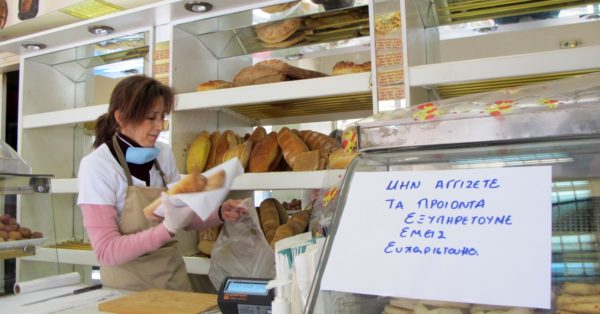 ΜΗΝ ΑΓΓΙΖΕΤΕ
ΤΑ ΠΡΟΙΟΝΤΑ
ΕΞΥΠΗΡΕΤΟΥΜΕ
ΕΜΕΙΣ
Ευχαριστουμε.